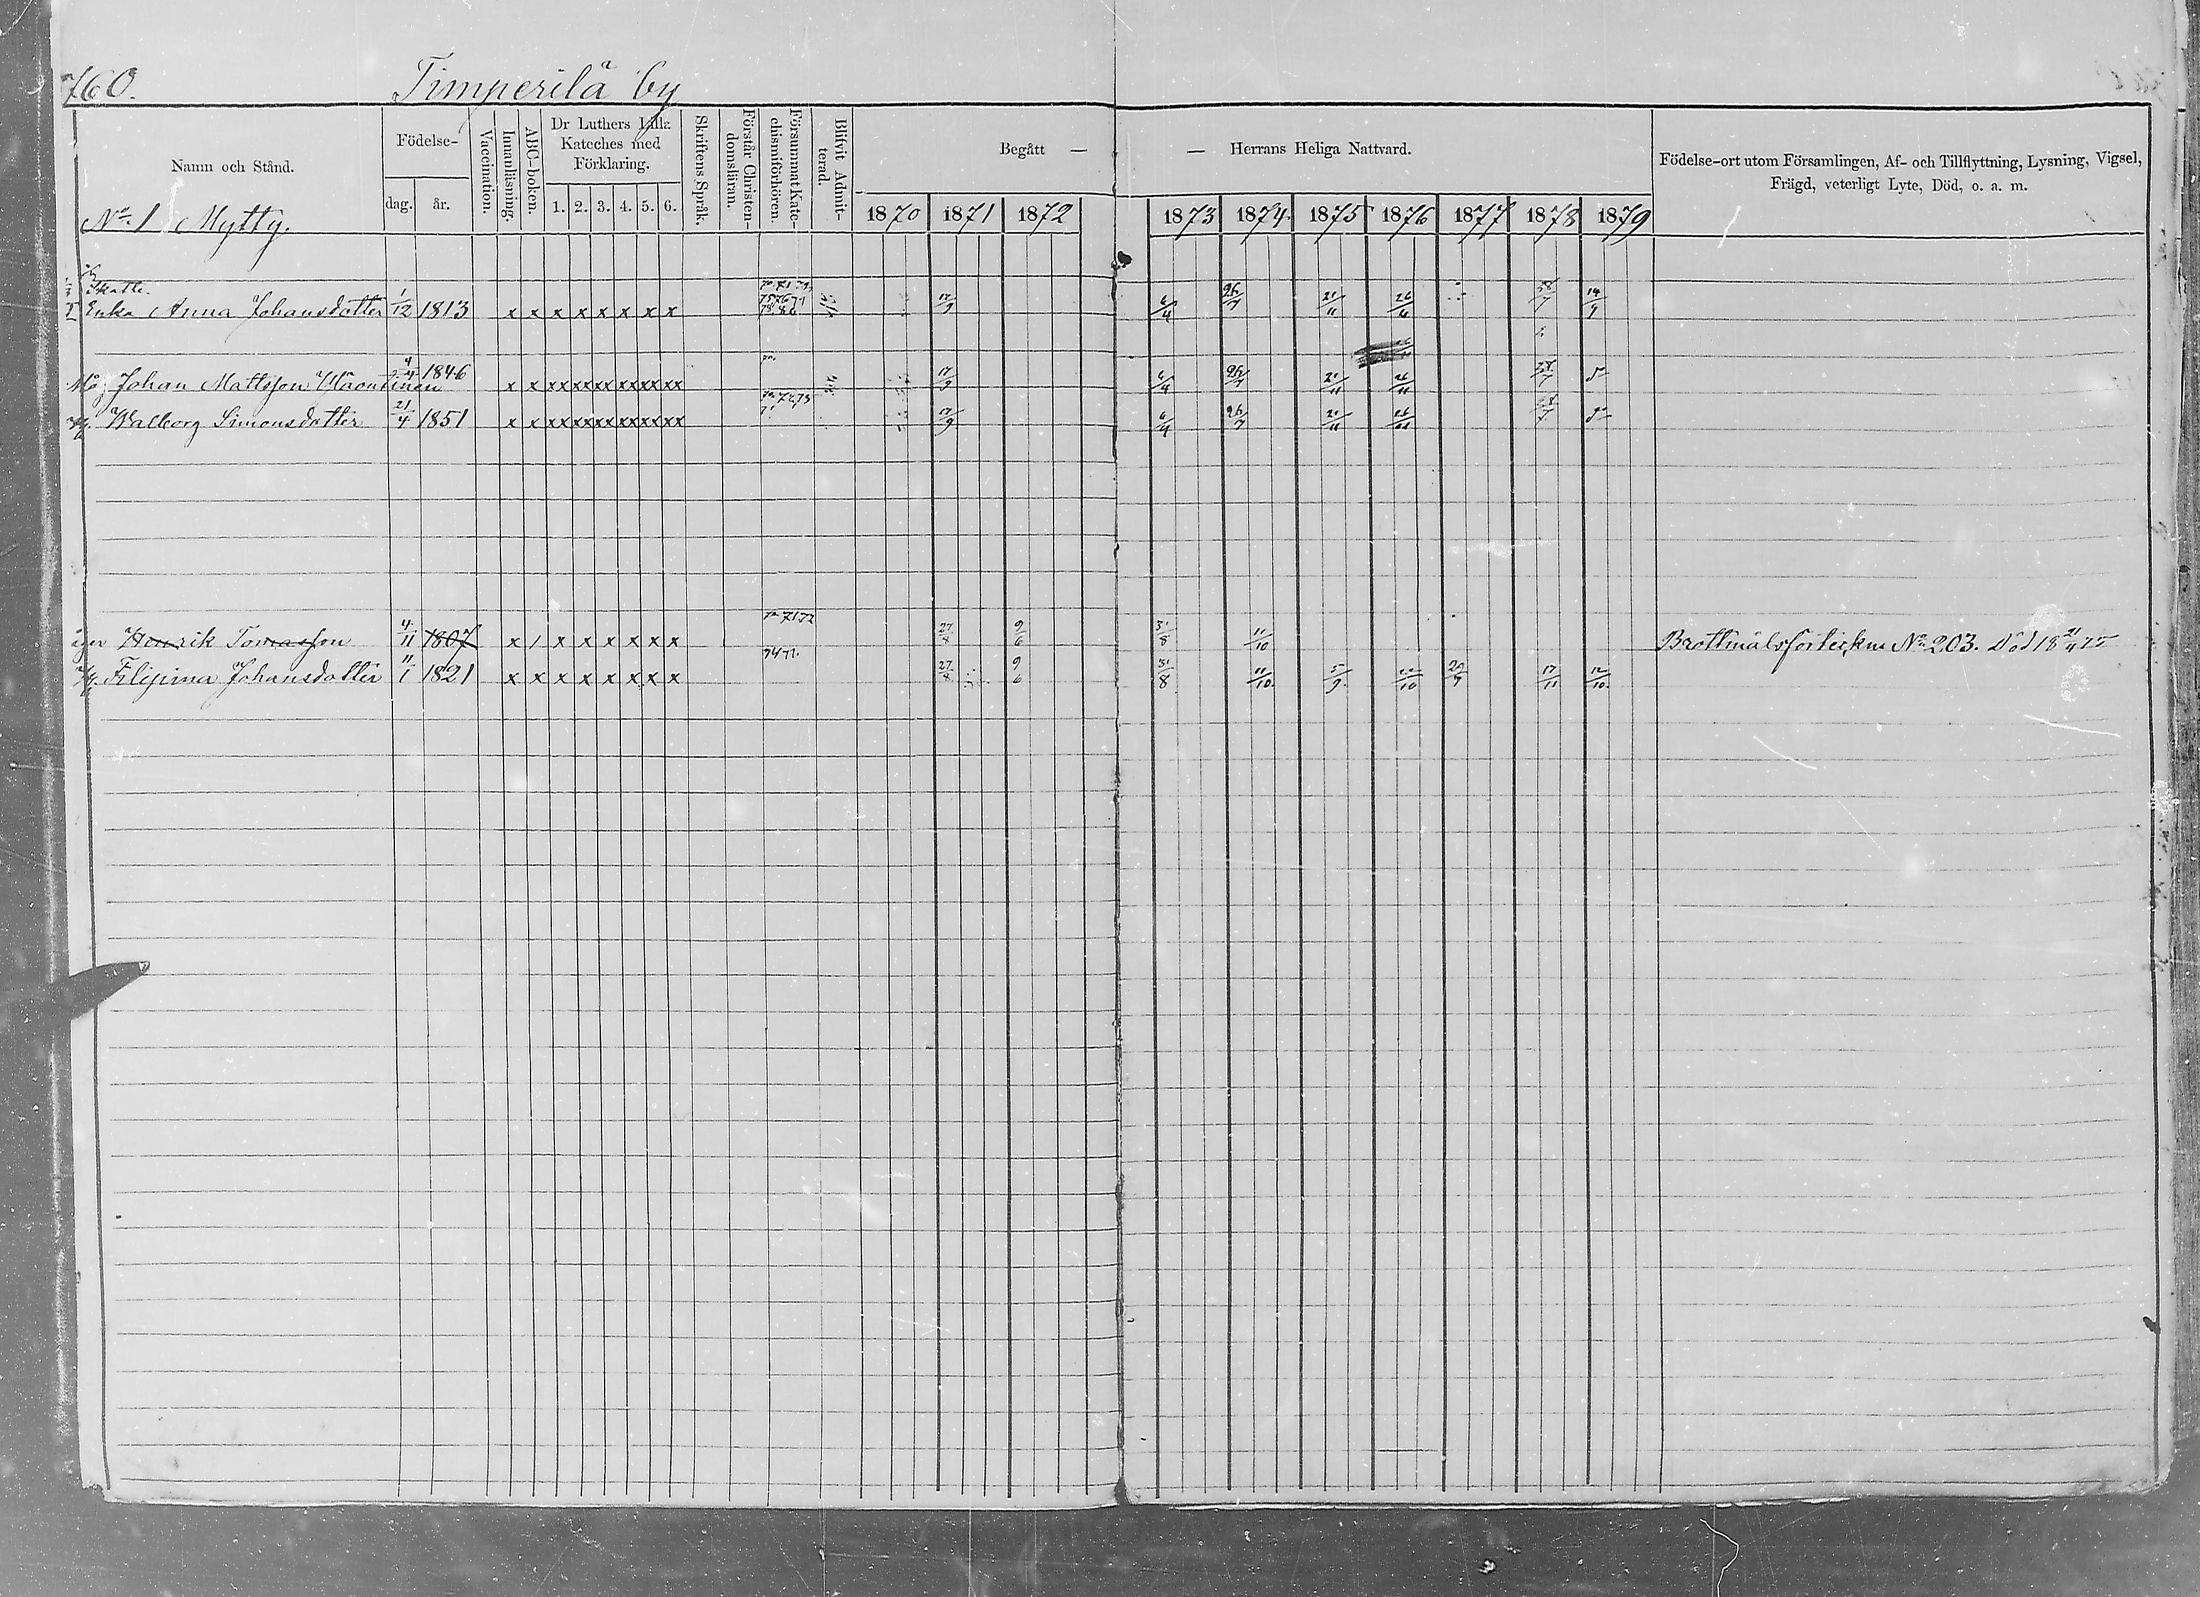 760. Timperilä by
Namn och Stånd.
Födelse-
dag. år.
Vaccination.
Innanläsning.
ABC-boken.
Dr Luthers Lilla Kateches med Förklaring.
1. 2. 3. 4. 5. 6.
Skriftens Språk.
Förstår Christen-domsläran.
Försummat Kate-chismiförhören.
Blifvit Admit-terad.
Begått — — Herrans Heliga Nattvard.
1870 1871 1872 1873 1874 1875 1876 1877 1878 1879
Födelse-ort utom Församlingen, Af- och Tillflyttning, Lysning, Vigsel,
Frägd, veterligt Lyte, Död, o. a. m.
No 1 Mytty.
Enka Anna Johansdotter 1/12 1813 x x x x x x x x 17/9 6/4 26/7 21/11 26/11 28/7 14/9
Måg Johan Mattsson 4/4 1846 x x xx xx xx xx xx xx 17/9 6/4 26/7 21/11 26/11 28/7
Walborg Simonsdotter 21/4 1851 x x xx xx xx xx xx xx 17/9 6/4 26/7 21/11 26/11 28/7
Henrik Tomasson 4/11 1807 x / x x x x x x 70 71 72 27/8 9/6 31/8 11/10 Brottmålsförteckn No 203. Död 18 21/4 75
Filipina Johansdotter 11/1 1821 x x x x x x x x 27/8 9/6 31/8 11/10 5/9 22/10 29/9 17/11 12/10